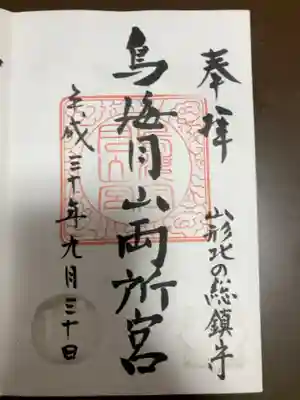 奉拝
山形北の総鎮守
鳥海月山両所宮
平成三十年九月三十日